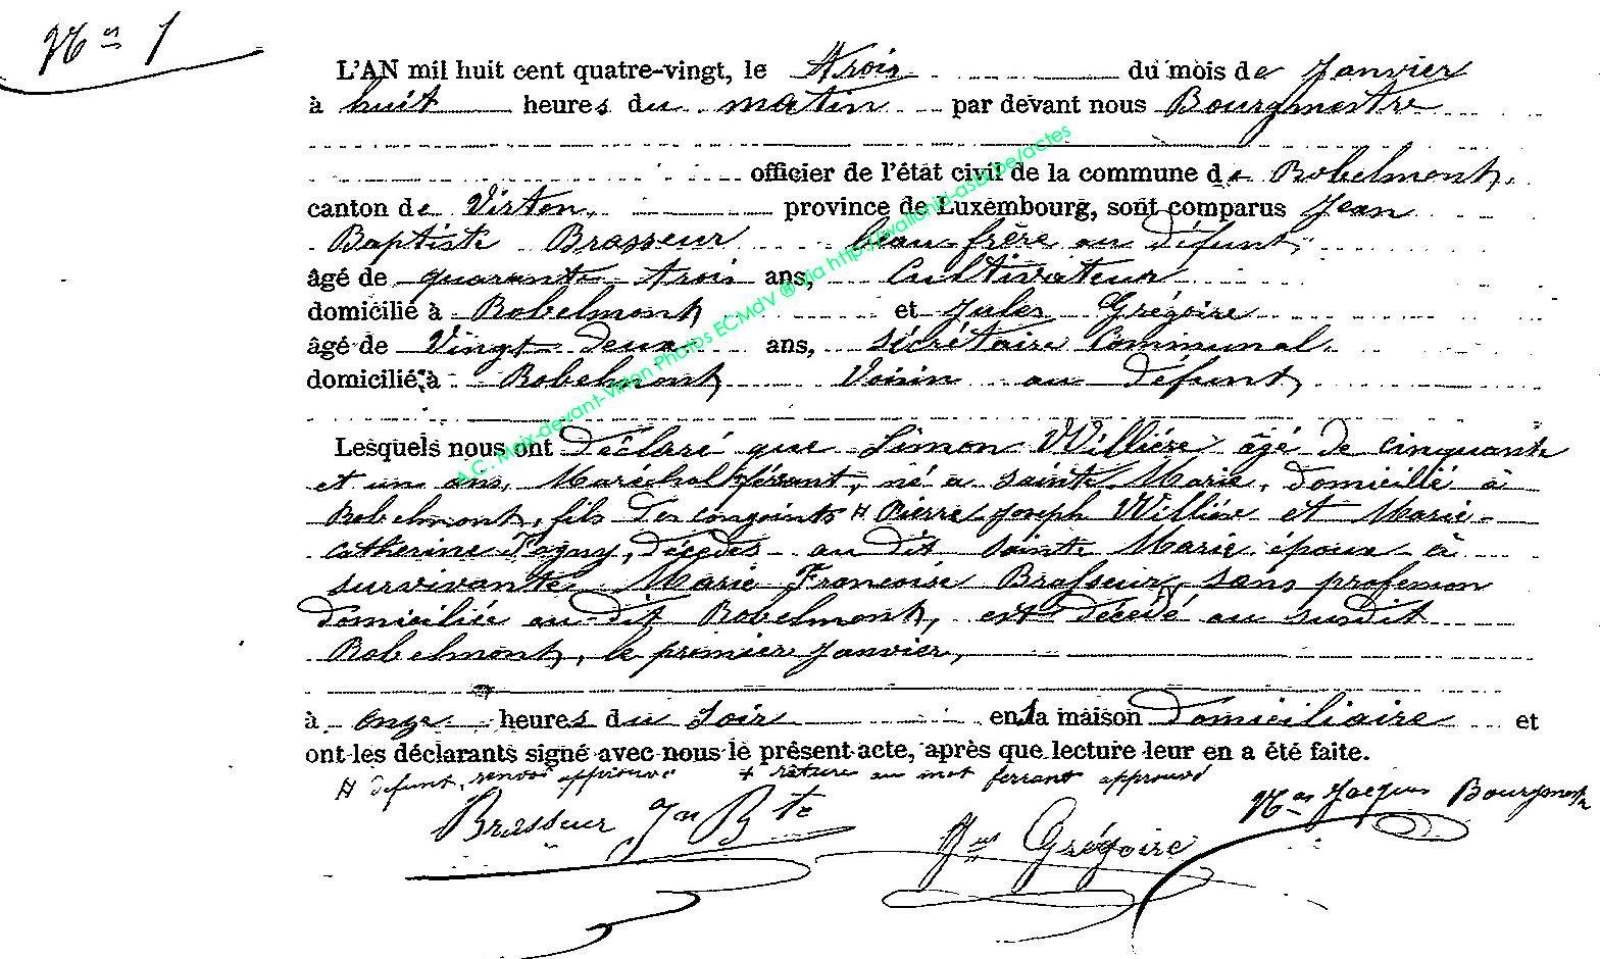 N° 1
L'AN mil huit cent quatre-vingt, le trois du mois de Janvier
à huit heures du matin par devant nous Bourgmestre
officier de l'état civil de la commune de Robelmont,
canton de Virton, province de Luxembourg, sont comparus Jean
Baptiste Brasseur beau-frère au défunt,
âgé de quarante trois ans, Cultivateur
domicilié à Robelmont et Jules Grégoire
âgé de Vingt deux ans, sécrétaire Communal.
domicilié à Robelmont Voisin au défunt,
Lesquels nous ont déclaré que Simon Willière âgé de cinquante
et un ans, Maréchal ferrant, né a sainte Marie, domicilié à
Robelmont, fils des conjoints # Pierre Joseph Willière et Marie-
catherine, décédés au dit sainte Marie époux à
survivante Marie Francoise Brasseur, sans profession
domiciliée au dit Robelmont, est décédé au susdit
Robelmont, le premier Janvier,
à onze heures du soir en la maison domiciliaire et
ont les déclarants signé avec nous le présent acte, après que lecture leur en a été faite.
# défunt, renvoi approuvé + râture au mot ferrant approuvé
Brasseur Jn Bte
Grégoire
Jacques Bourgmestre
A.C. Meix-devant-Virton Photos ECMdV ® via http://wallonia-asbl.be/actes